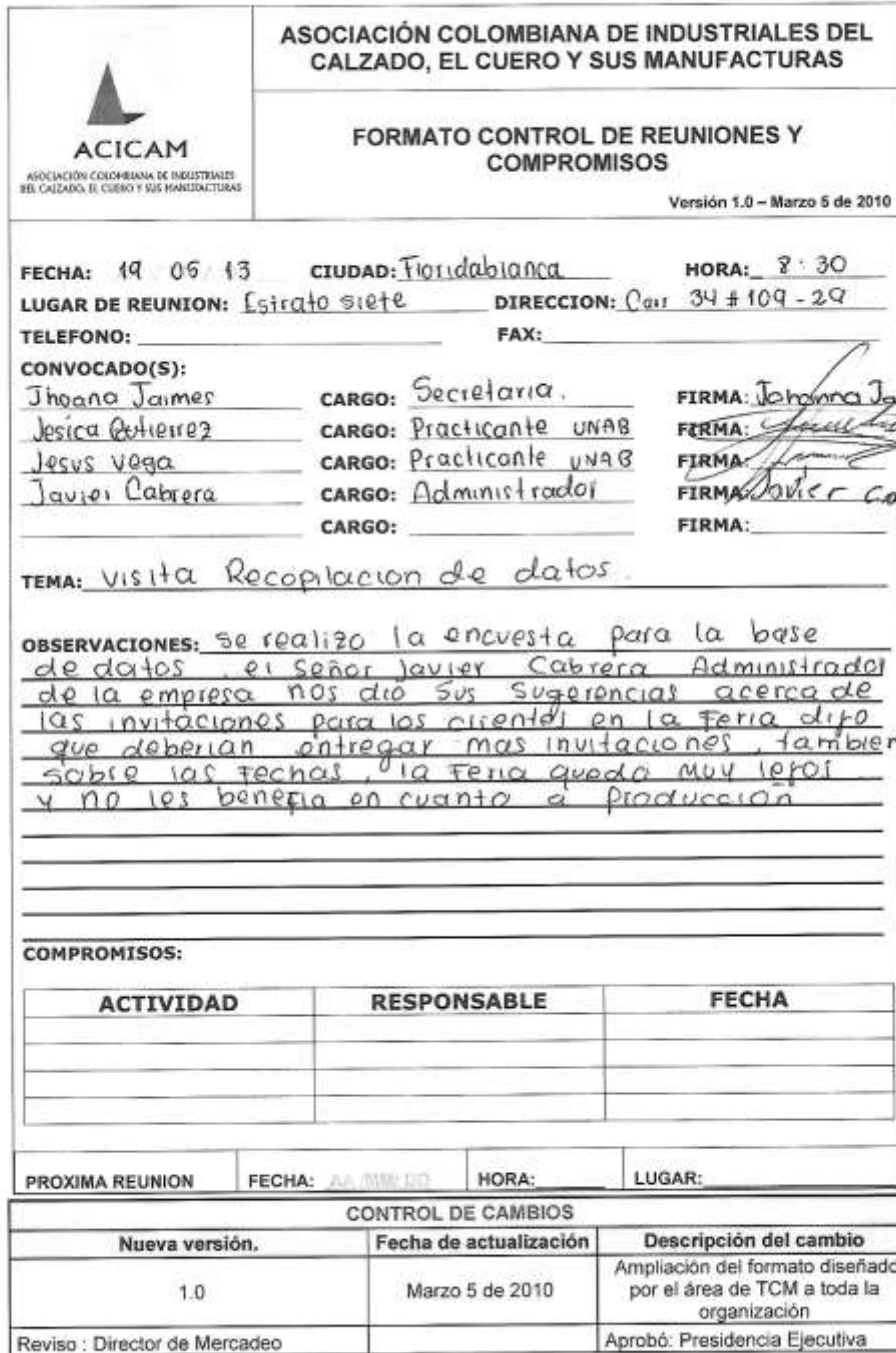 ACICAM
ASOCIACIÓN COLOMBIANA DE INDUSTRIALES
DEL CALZADO, EL CUERO Y SUS MANUFACTURAS
ASOCIACIÓN COLOMBIANA DE INDUSTRIALES DEL
CALZADO, EL CUERO Y SUS MANUFACTURAS
FORMATO CONTROL DE REUNIONES Y
COMPROMISOS
Versión 1.0 – Marzo 5 de 2010
FECHA: 19 05 13 CIUDAD: Floridablanca HORA: 8:30
LUGAR DE REUNION: Estrato siete DIRECCION: Car 34 # 109 - 29
TELEFONO: FAX:
CONVOCADO(S):
Jhoana Jaimes CARGO: Secretaria. FIRMA: Johanna Ja
Jesica Gutierrez CARGO: Practicante UNAB FIRMA:
Jesus Vega CARGO: Practicante UNAB FIRMA:
Javier Cabrera CARGO: Administrador FIRMA: Javier Ca
CARGO: FIRMA:
TEMA: Visita Recopilacion de datos.
OBSERVACIONES: Se realizo la encuesta para la base
de datos, el Señor Javier Cabrera Administrador
de la empresa nos dio sus sugerencias acerca de
las invitaciones para los clientes en la Feria dijo
que deberian entregar mas invitaciones, tambien
sobre las fechas, la Feria queda muy lejos
y no les benefia en cuanto a Producción
COMPROMISOS:
ACTIVIDAD RESPONSABLE FECHA
PROXIMA REUNION FECHA: AA/MM/DD HORA: LUGAR:
CONTROL DE CAMBIOS
Nueva versión. Fecha de actualización Descripción del cambio
1.0 Marzo 5 de 2010 Ampliación del formato diseñado
por el área de TCM a toda la
organización
Reviso : Director de Mercadeo Aprobó: Presidencia Ejecutiva